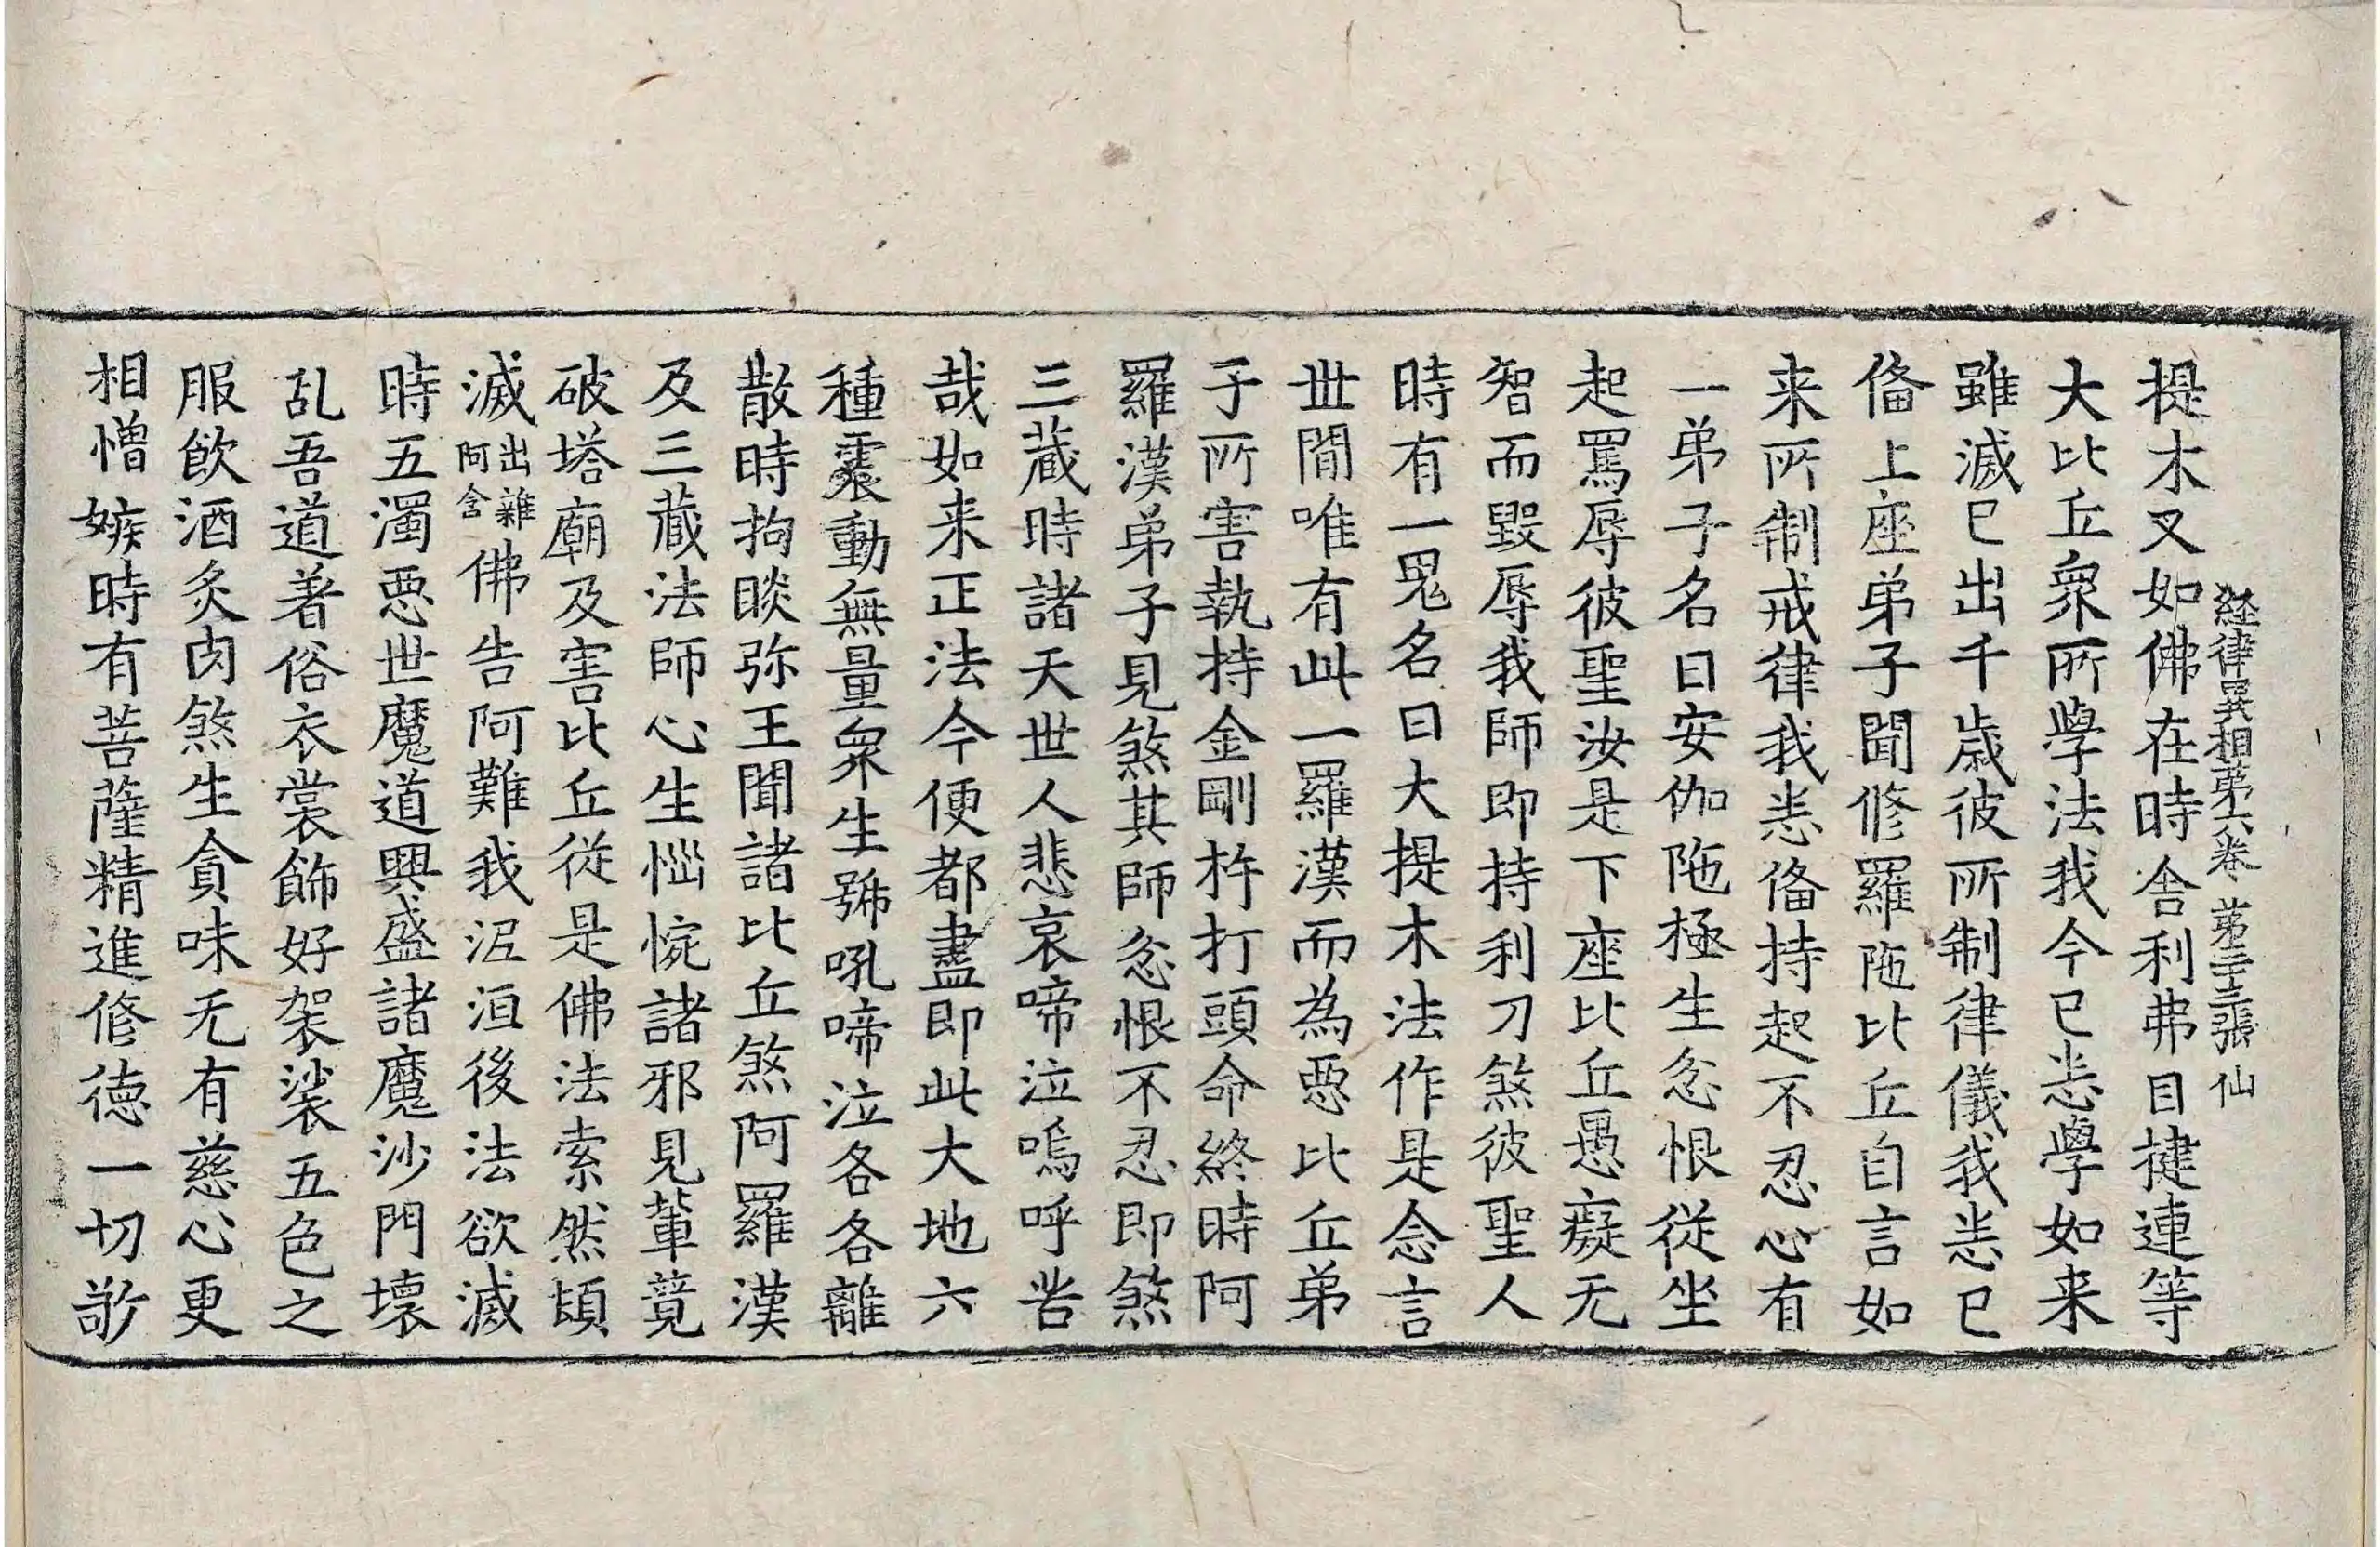 経律異相第六卷 第二十三張 仙
提木叉如佛在時舎利弗目揵連等
大比丘衆所學法我今已恙學如来
雖滅已出千歳彼所制律儀我恙已
俻上座弟子聞修羅陁比丘自言如
来所制戒律我恙俻持起不忍心有
一弟子名曰安伽陁極生忿恨從坐
起罵辱彼聖汝是下座比丘愚癡无
智而毀辱我師即持利刀煞彼聖人
時有一鬼名曰大提木法作是念言
世間唯有此一羅漢而為惡比丘弟
子所害執持金剛杵打頭命終時阿
羅漢弟子見煞其師忿恨不忍即煞
三蔵時諸天世人悲哀啼泣嗚呼苦
哉如来正法今便都盡即此大地六
種震動無量衆生號吼啼泣各各離
散時拘睒弥王聞諸比丘煞阿羅漢
及三蔵法師心生惱惋諸邪見軰竟
破塔廟及害比丘從是佛法索然頓
滅出雜阿含佛告阿難我泥洹後法欲滅
時五濁惡世魔道興盛諸魔沙門壊
乱吾道著俗衣裳飾好袈裟五色之
服飲酒炙肉煞生貪味无有慈心更
相憎嫉時有菩薩精進修徳一切敬